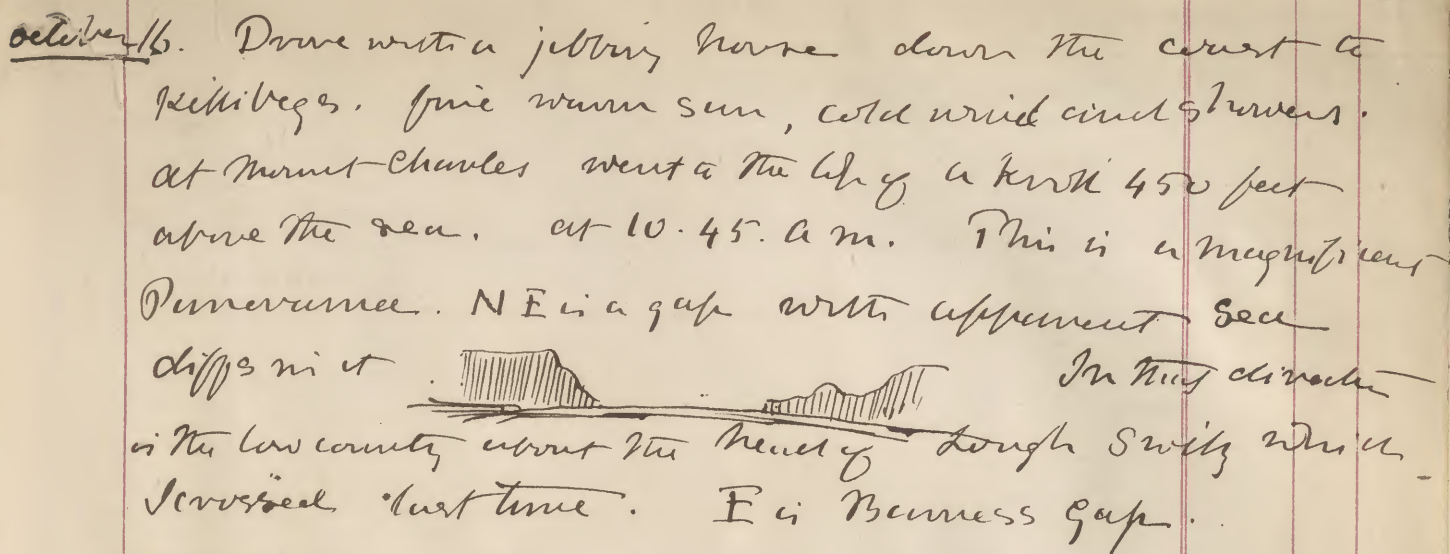 October 16. Drove with a jibbing horse down the coast to
Killibegs. fine warm sun, cold wind and showers.
at Mount Charles went to the top of a knoll 450 feet
above the sea. at 10.45. a m. This is a magnificent
Panorama. N E is a gap with apparent sea
cliffs in it In that direction
is the low country about the head of Lough Swilly which
I crossed last time. E is Barness Gap.